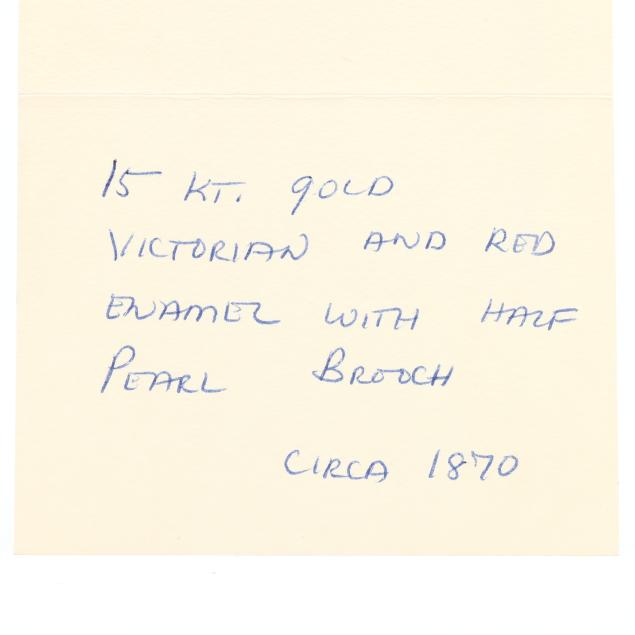 15 KT. GOLD
VICTORIAN AND RED
ENAMEL WITH HALF
PEARL BROOCH
CIRCA 1870